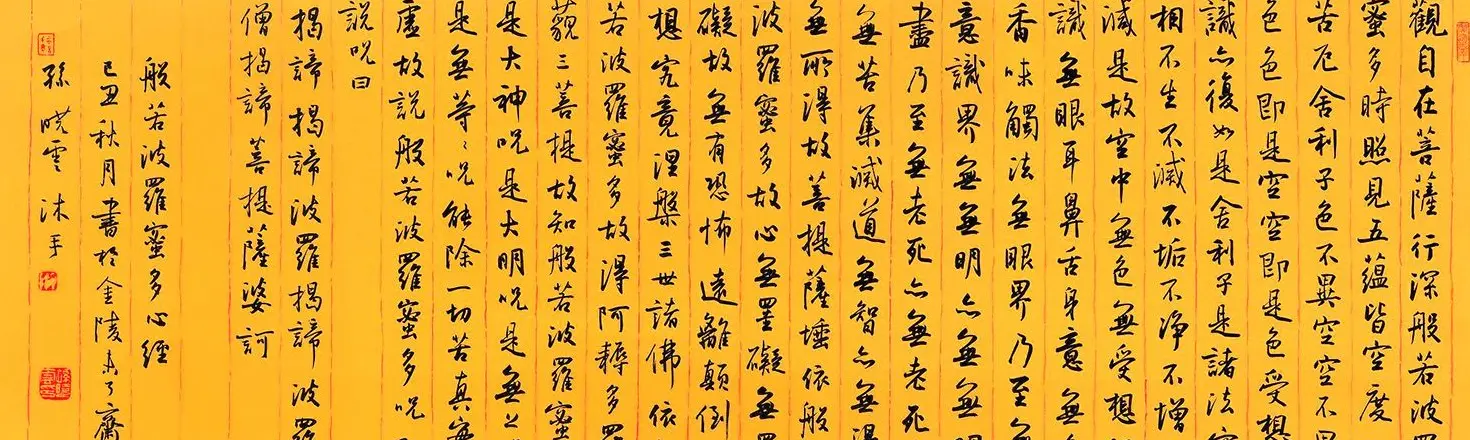 觀自在菩薩行深般若波羅
蜜多時照見五蘊皆空度
苦厄舍利子色不異空空不異
色色即是空空即是色受想
識亦復如是舍利子是諸法空
相不生不滅不垢不淨不增
減是故空中無色無受想
識無眼耳鼻舌身意無
香味觸法無眼界乃至
意識界無無明亦無無明
盡乃至無老死亦無老死
無苦集滅道無智亦無得
無所得故菩提薩埵依般
波羅蜜多故心無罣礙無罣
礙故無有恐怖遠離顛倒
想究竟涅槃三世諸佛依
若波羅蜜多故得阿耨多羅
藐三菩提故知般若波羅蜜
是大神咒是大明咒是無上
是無等々咒能除一切苦真實
虛故說般若波羅蜜多咒
說咒曰
揭諦揭諦波羅揭諦波羅
僧揭諦菩提薩婆訶
般若波羅蜜多心經
己丑秋月書於金陵未了齋
孫曉雲沐手